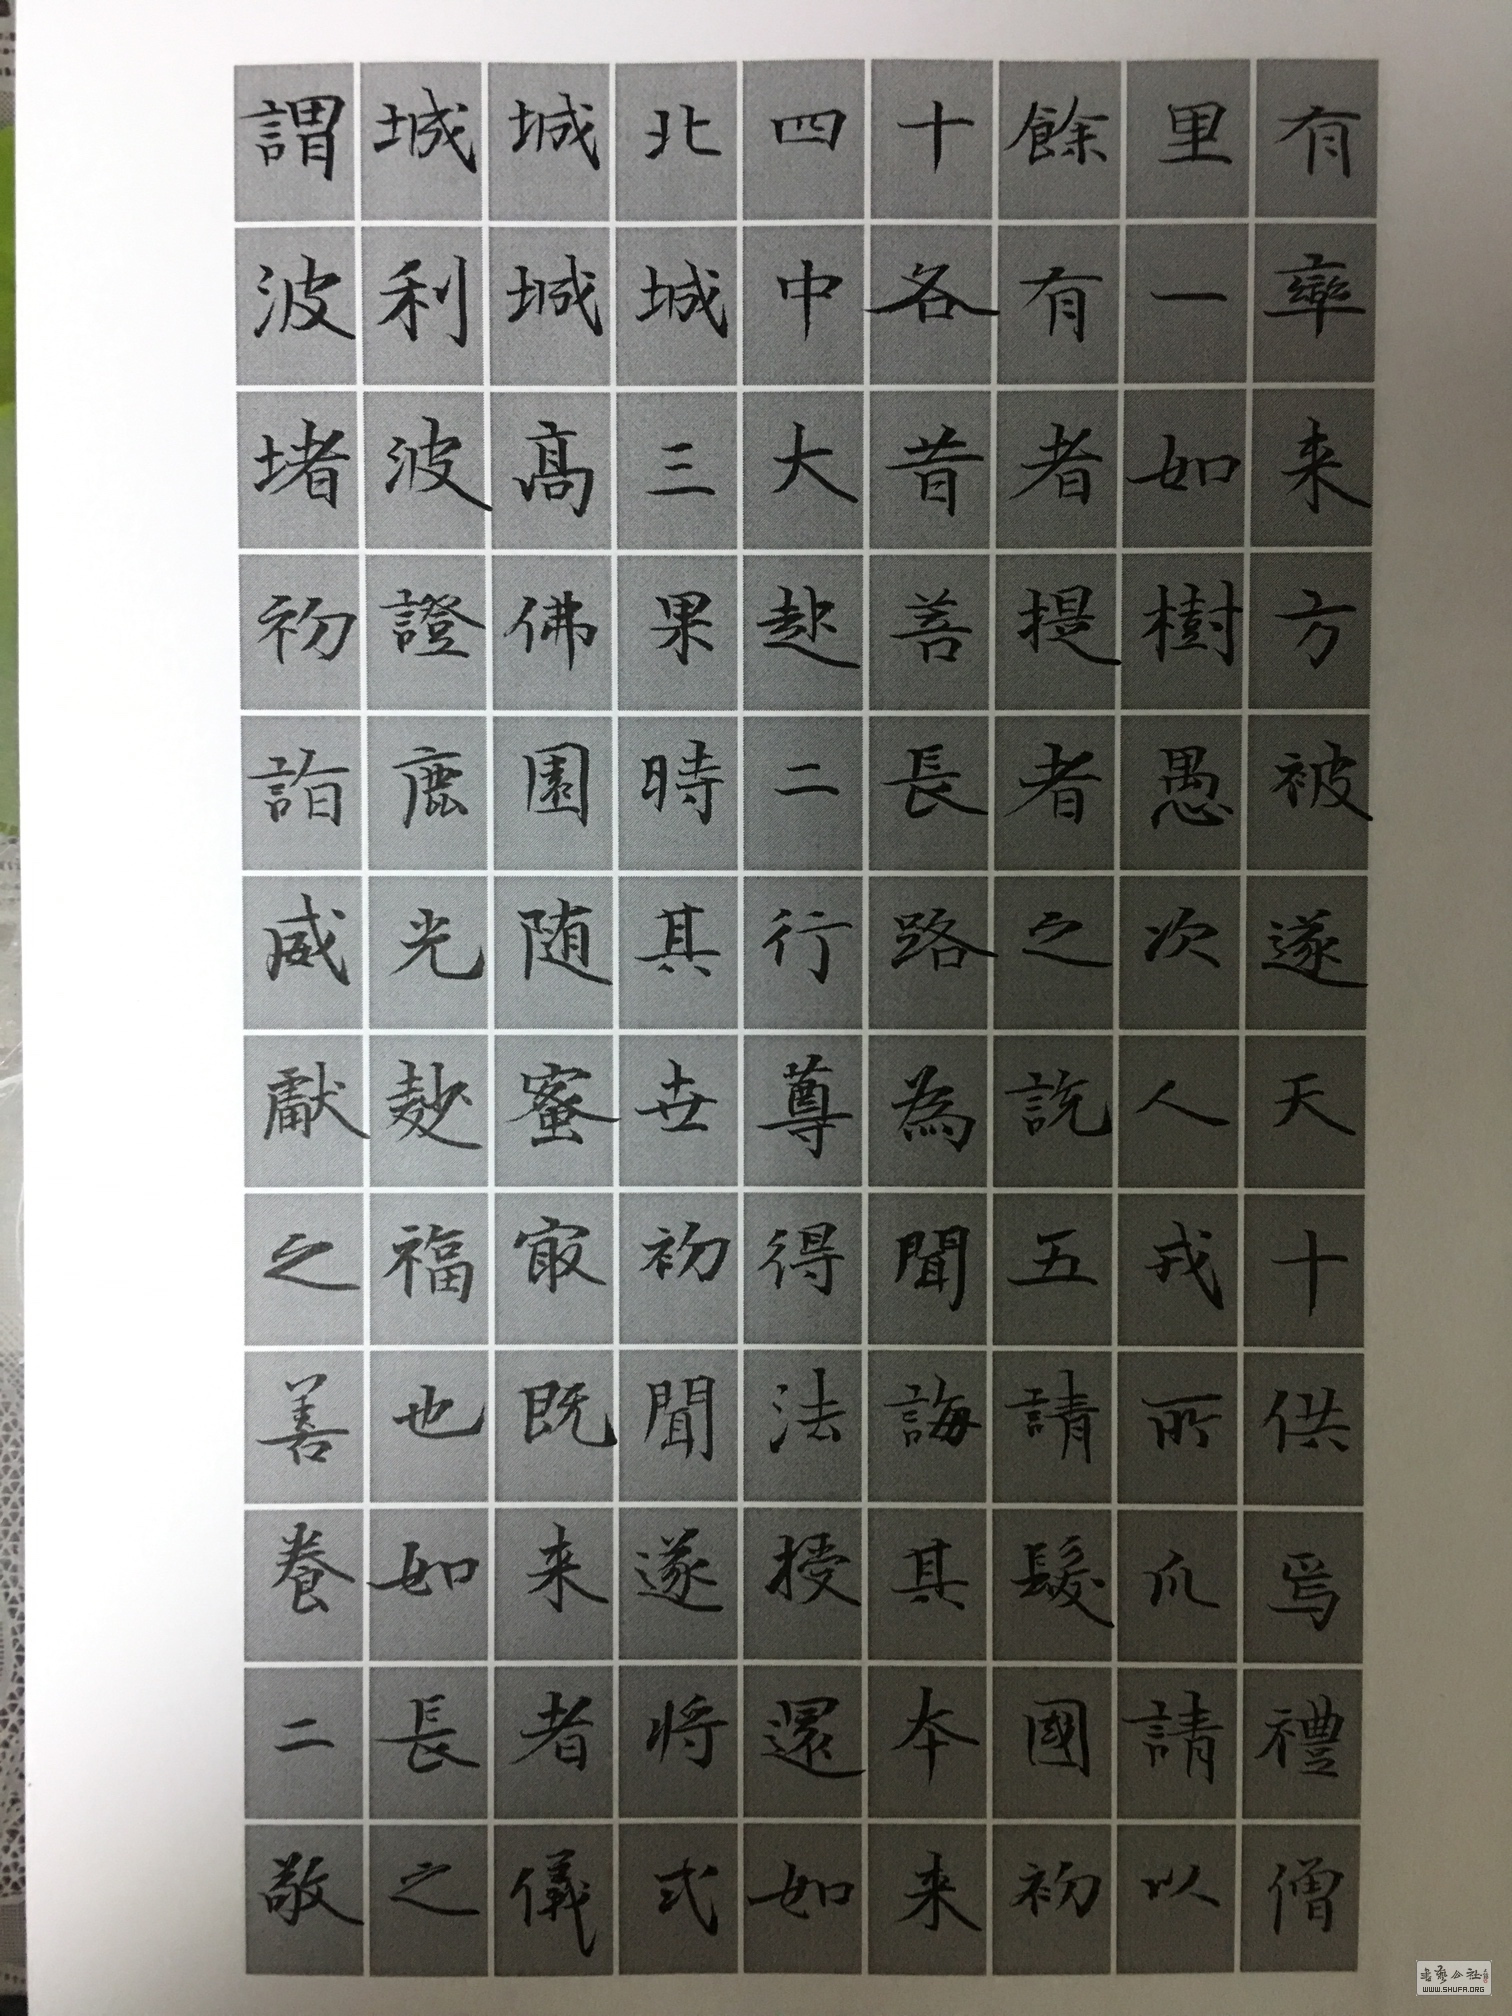 謂城城北四十餘里有
波利城城中各有一率
堵波高三大昔者如来
初證佛果赴菩提樹方
詣鹿園時二長者愚被
威光随其行路之次遂
獻麨蜜世尊為説人天
之福冣初得聞五戒十
善也既聞法誨請所供
養如来遂授其髮爪焉
二長者将還本國請禮
敬之儀式如来初以僧
书艺公社
WWW.SHUFA.ORG